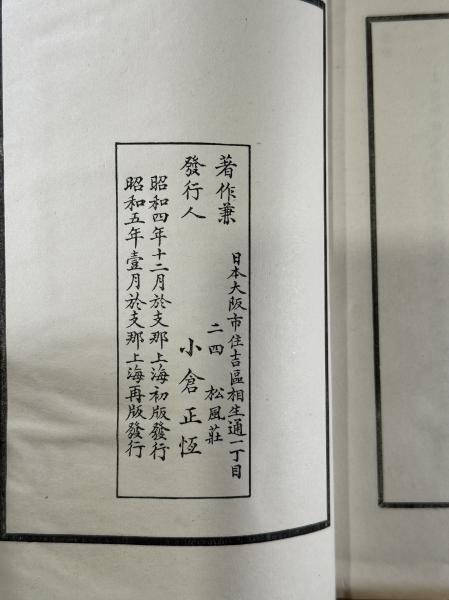 著作兼
發行人
日本大阪市住吉區相生通一丁目
二四 松風莊
小倉正恆
昭和四年十二月於支那上海初版發行
昭和五年壹月於支那上海再版發行